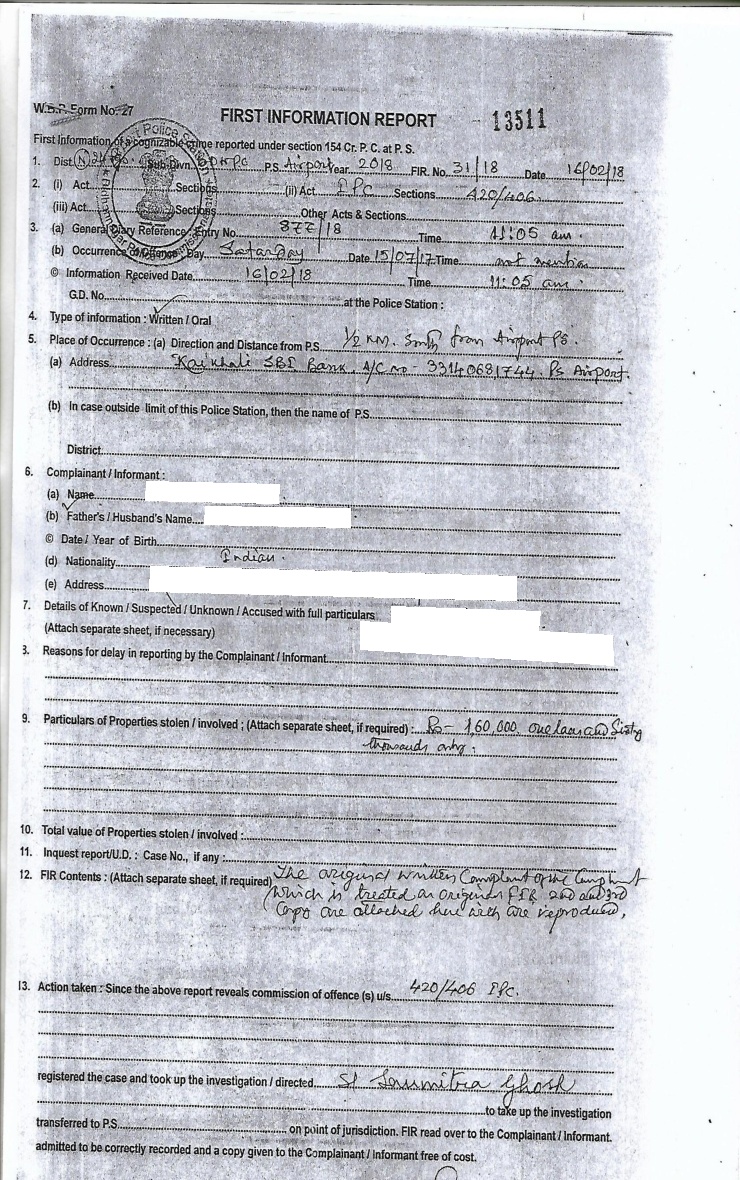 W.B.P. Form No.-27
FIRST INFORMATION REPORT 13511
First Information of a cognizable crime reported under section 154 Cr. P. C. at P. S.
1. Dist. (N) 24 Sub-Divn. P.S. Airport Year 2018 FIR. No. 31/18 Date 16/02/18
2. (i) Act Sections (ii) Act IPC Sections 420/406.
(iii) Act Sections Other Acts & Sections
3. (a) General Diary Reference : Entry No. 877/18 Time 11:05 am.
(b) Occurrence of Offence : Day. Satarday Date 15/07/17 Time not mention
© Information Received Date 16/02/18 Time 11:05 am.
G.D. No at the Police Station :
4. Type of information : Written / Oral
5. Place of Occurrence : (a) Direction and Distance from P.S. 1/2 KM. South from Airport PS.
(a) Address Kaikhali SBI Bank. A/C no - 33140681744. Ps Airport.
(b) In case outside limit of this Police Station, then the name of P.S.
District
6. Complainant / Informant :
(a) Name
(b) Father's / Husband's Name
© Date / Year of Birth
(d) Nationality Indian.
(e) Address
7. Details of Known / Suspected / Unknown / Accused with full particulars
(Attach separate sheet, if necessary)
3. Reasons for delay in reporting by the Complainant / Informant
9. Particulars of Properties stolen / involved ; (Attach separate sheet, if required) : Rs- 160,000. one lac and Sixty
thousands only.
10. Total value of Properties stolen / involved :
11. Inquest report/U.D. : Case No., if any :
12. FIR Contents : (Attach separate sheet, if required) The original written Complaint of the
which is treated as original FIR 2nd and 3rd
Copy are attached here with are reproduced.
13. Action taken : Since the above report reveals commission of offence (s) u/s 420/406 IPC.
registered the case and took up the investigation / directed SI Soumitra Ghosh
to take up the investigation
transferred to P.S. on point of jurisdiction. FIR read over to the Complainant / Informant.
admitted to be correctly recorded and a copy given to the Complainant / Informant free of cost.